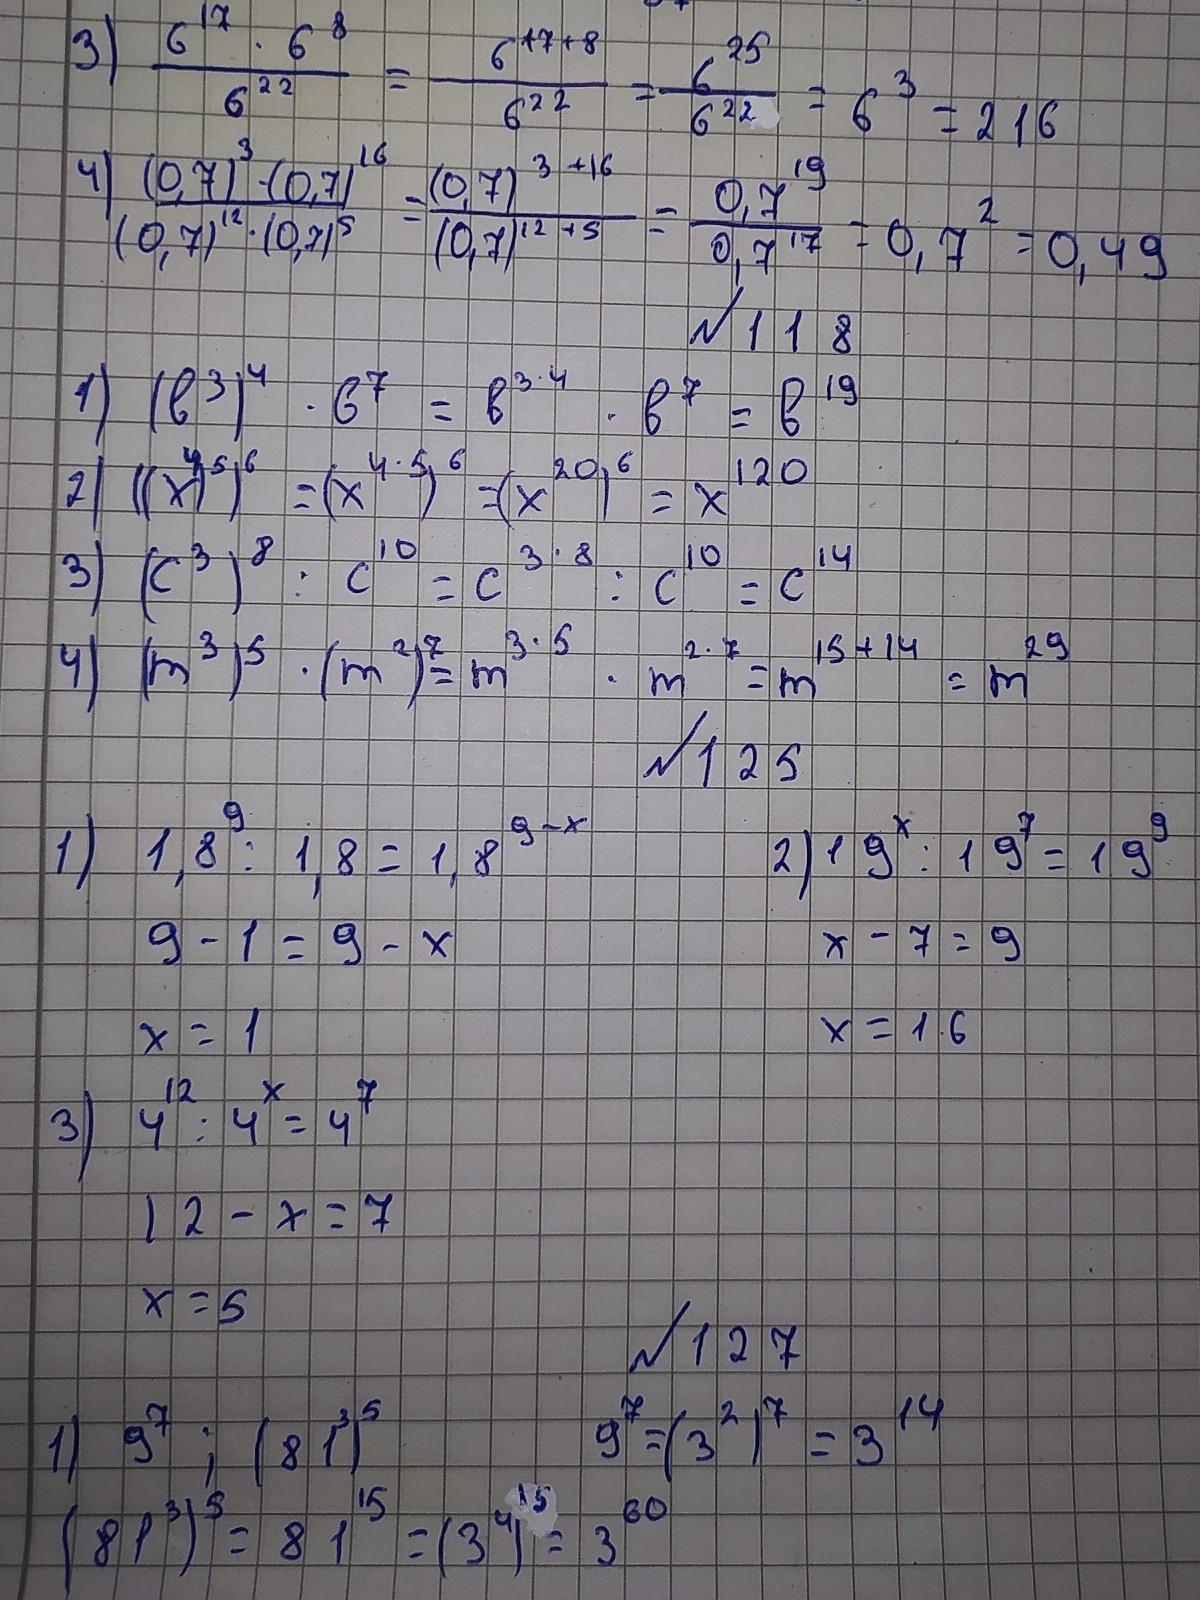 3) (6^17 · 6^8)/6^22 = 6^(17+8)/6^22 = 6^25/6^22 = 6^3 = 216
4) ((0,7)^3 · (0,7)^16)/((0,7)^12 · (0,7)^5) = (0,7)^(3+16)/(0,7)^(12+5) = 0,7^19/0,7^17 = 0,7^2 = 0,49
№118
1) (в^3)^4 · в^7 = в^(3·4) · в^7 = в^19
2) ((x^4)^5)^6 = (x^(4·5))^6 = (x^20)^6 = x^120
3) (c^3)^8 : c^10 = c^(3·8) : c^10 = c^14
4) (m^3)^5 · (m^2)^7 = m^(3·5) · m^(2·7) = m^(15+14) = m^29
№125
1) 1,8^9 : 1,8 = 1,8^(9-x) 2) 19^x : 19^7 = 19^9
9 - 1 = 9 - x x - 7 = 9
x = 1 x = 16
3) 4^12 : 4^x = 4^7
12 - x = 7
x = 5
№127
1) 9^7 ; (81^3)^5 9^7 = (3^2)^7 = 3^14
(81^3)^5 = 81^15 = (3^4)^15 = 3^60